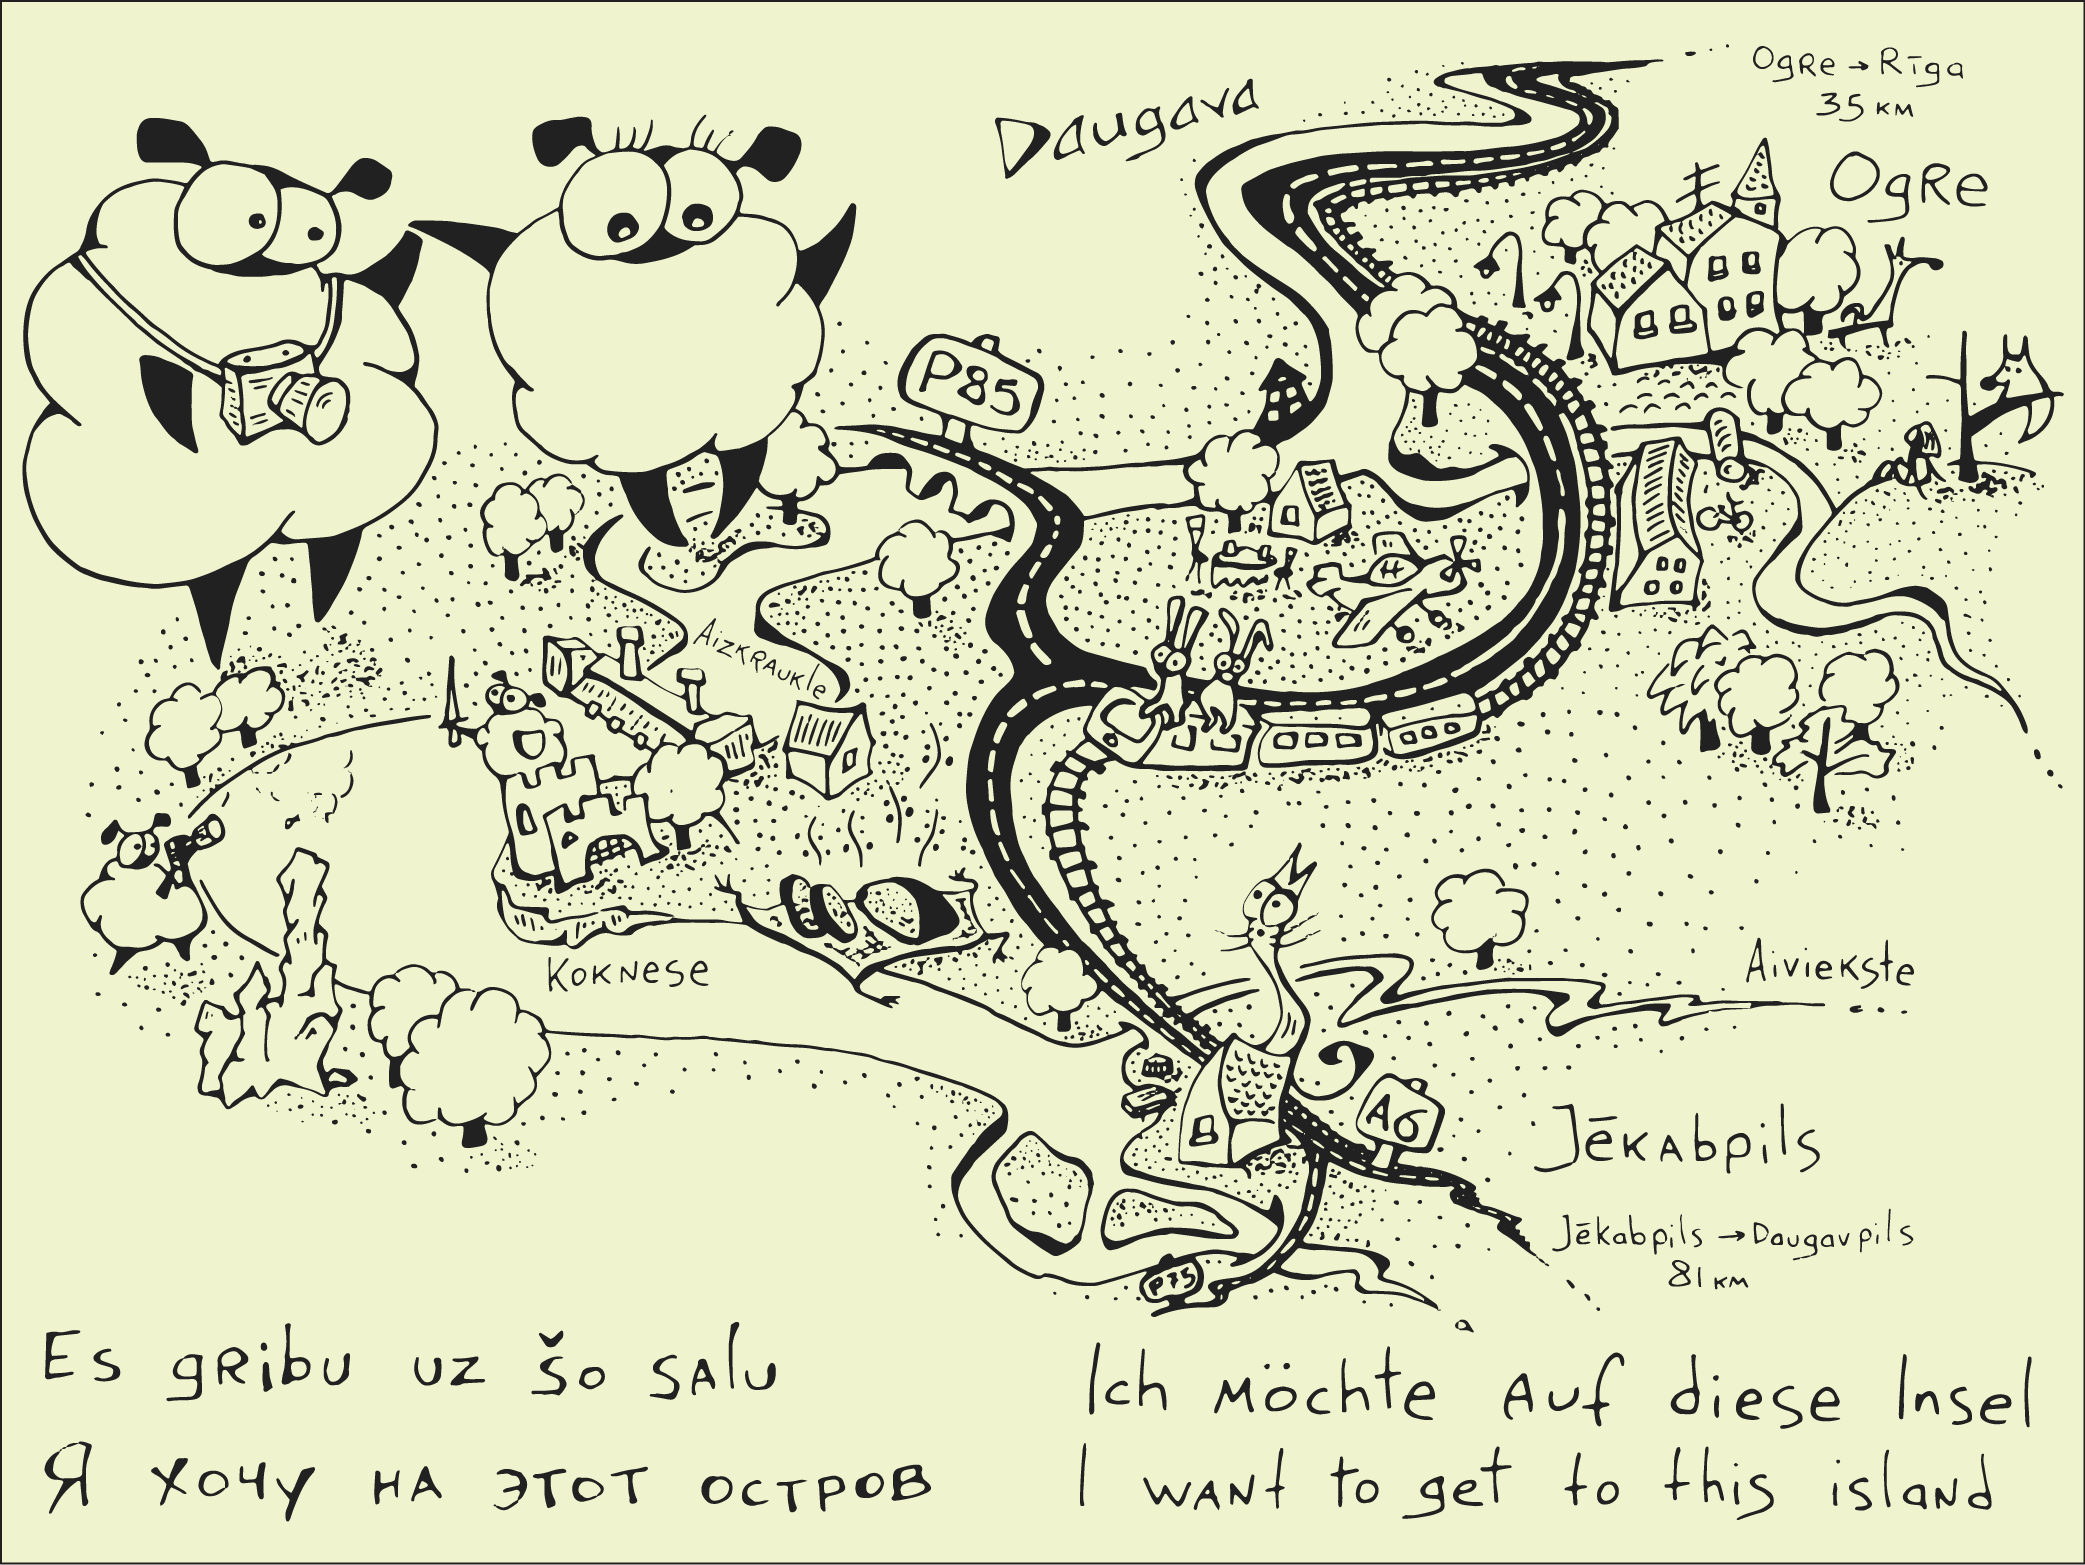 Ogre → Rīga
35 km
Daugava
Ogre
P85
Aizkraukle
H
Koknese
Aiviekste
A6
Jēkabpils
Jēkabpils → Daugavpils
81 km
P75
Es gribu uz šo salu
Я хочу на этот остров
Ich möchte auf diese Insel
I want to get to this island